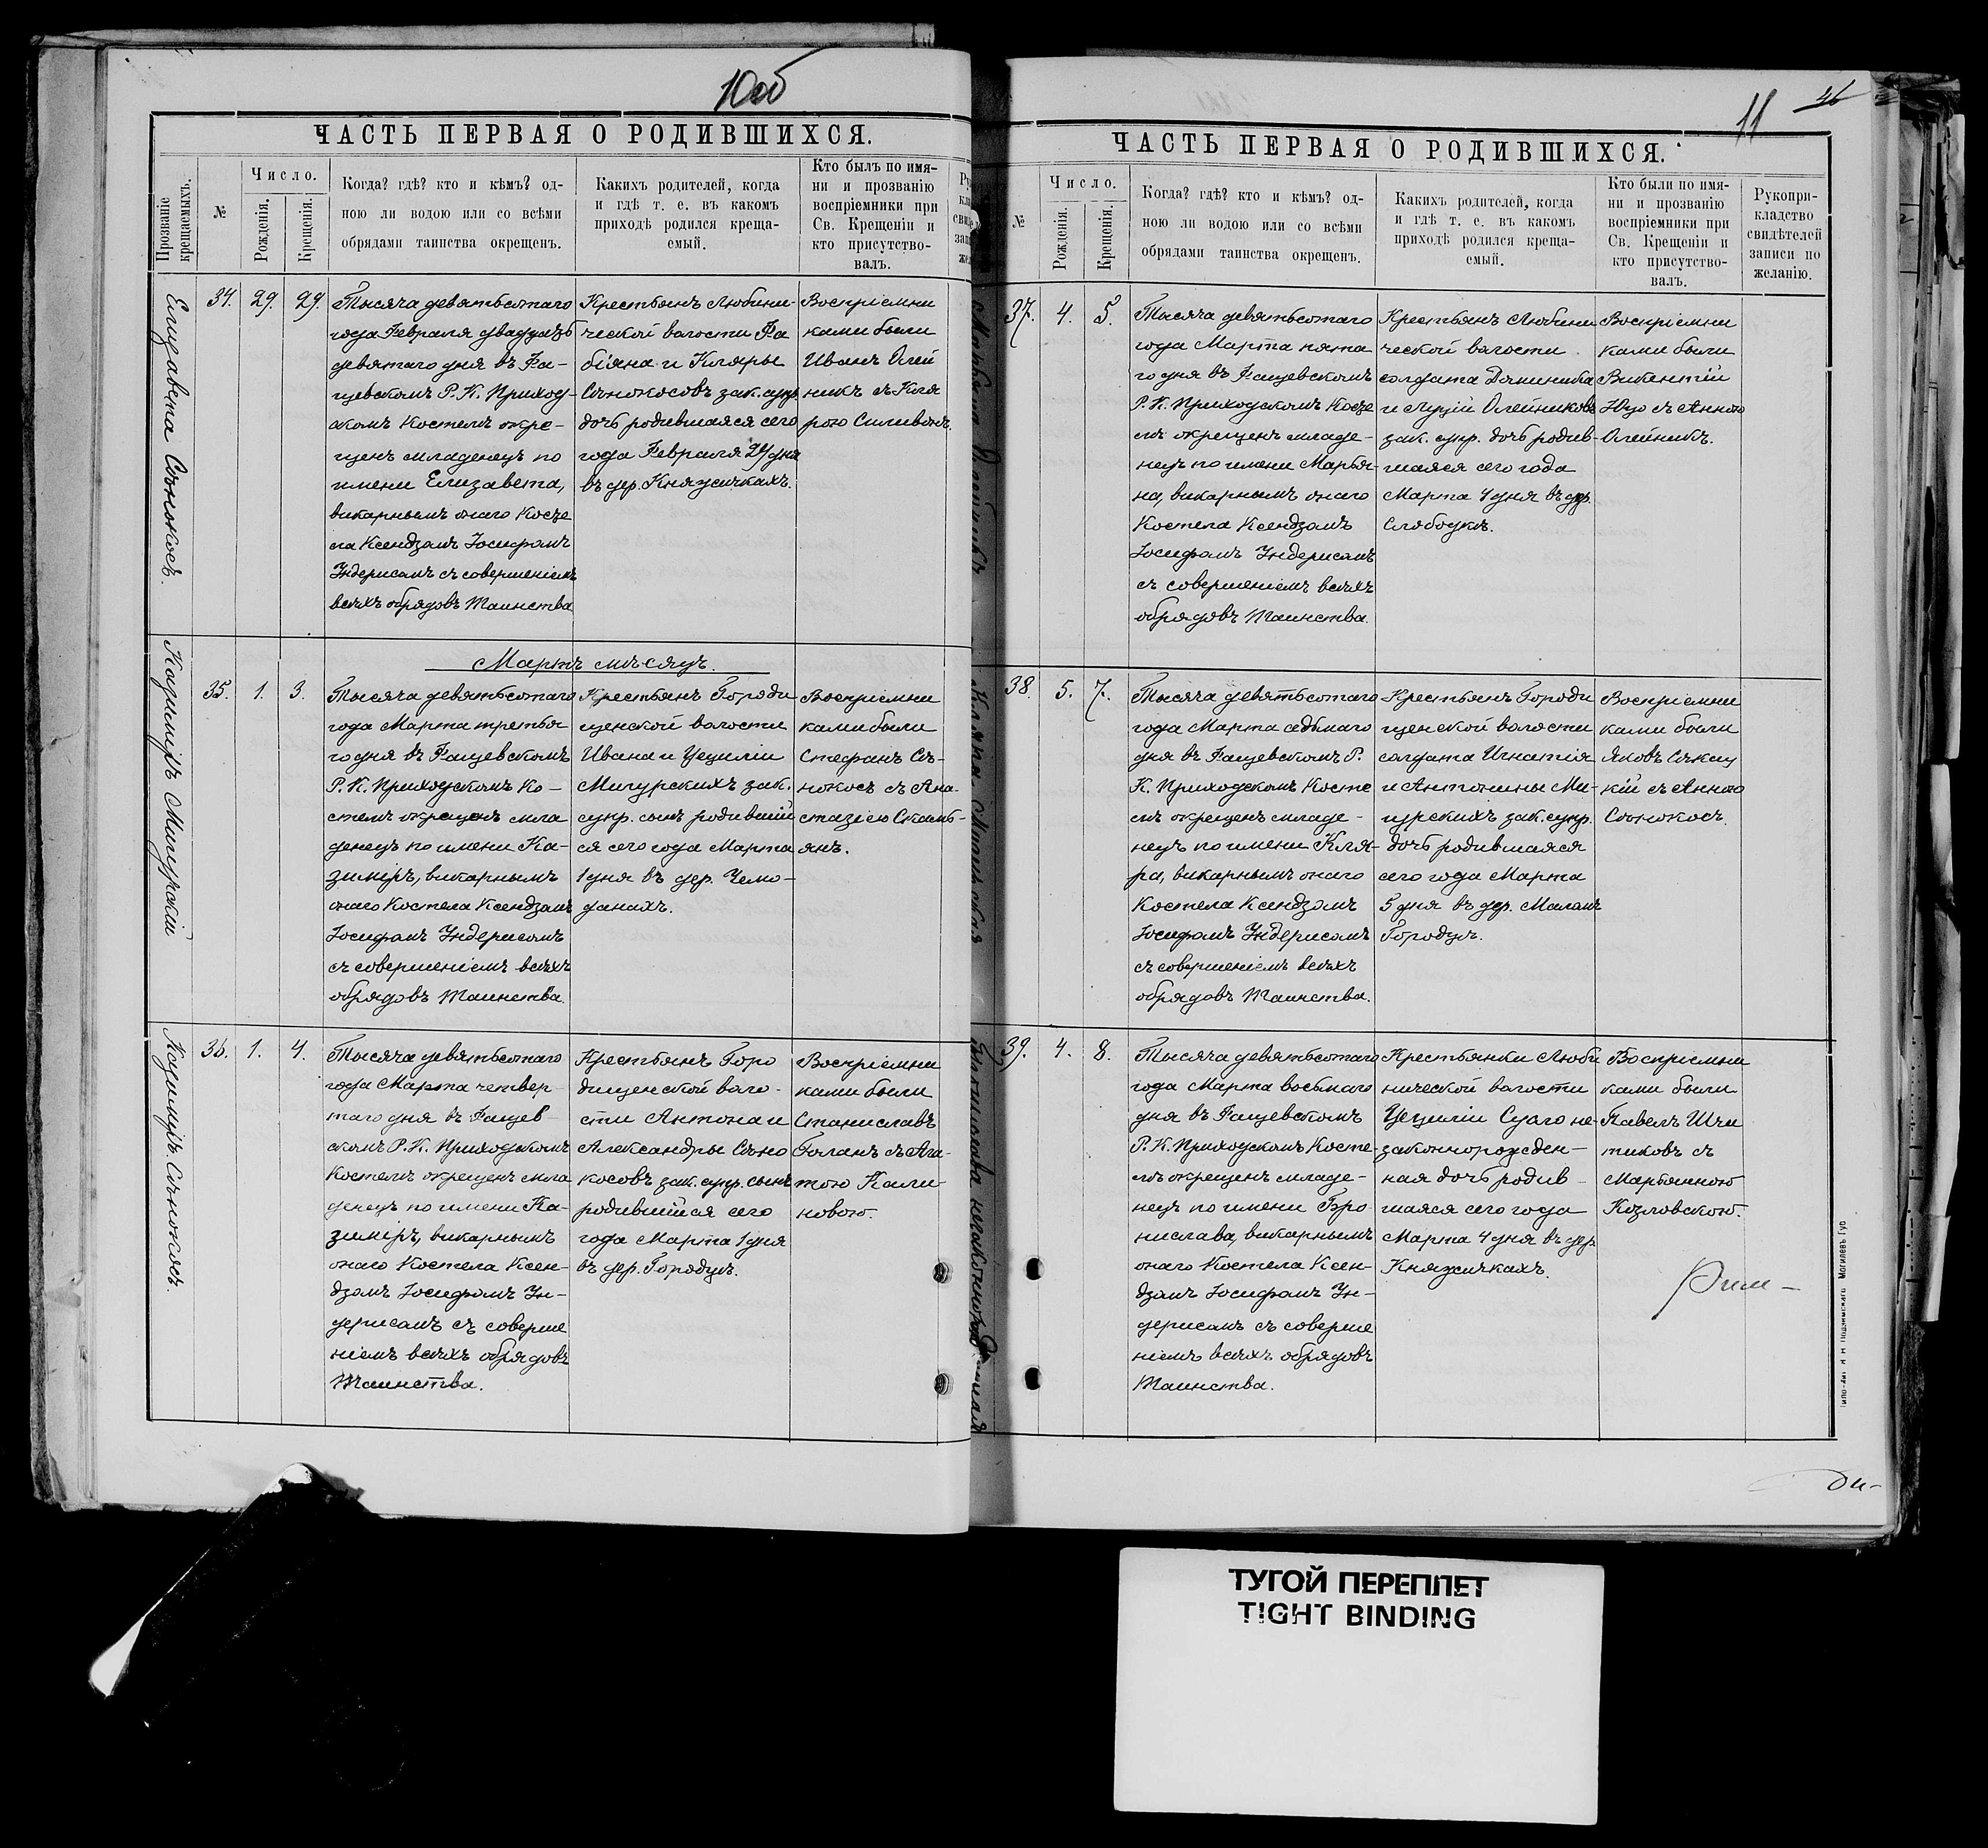 10об
ЧАСТЬ ПЕРВАЯ О РОДИВШИХСЯ.
Прозваніе
крещаемыхъ.
№
Число.
Рожденія.
Крещенія.
Когда? гдѣ? кто и кѣмъ? од-
ною ли водою или со всѣми
обрядами таинства окрещенъ.
Какихъ родителей, когда
и гдѣ т. е. въ какомъ
приходѣ родился креща-
емый.
Кто былъ по имя-
ни и прозванію
воспріемники при
Св. Крещеніи и
кто присутство-
валъ.
Елизавета Сѣнокосъ.
34.
29.
29.
Тысяча девятьсотаго
года Февраля двадцать
девятаго дня въ Фа-
щевскомъ Р. К. Приход-
скомъ Костелѣ окре-
щенъ младенецъ по
имени Елизавета,
викарнымъ онаго Косте
ла Ксендзомъ Іосифомъ
Индерисомъ съ совершеніемъ
всѣхъ обрядовъ Таинства
Крестьянъ Любини-
ческой волости Фа
біяна и Кляры
Сѣнокосовъ зак. супр.
дочь родившаяся сего
года Февраля 29 дня
въ дер. Княжичкахъ.
Воспріемни
ками были
Иванъ Олей
никъ съ Кля
рою
Мартъ мѣсяцъ.
Казимиръ Мигурскій
35.
1.
3.
Тысяча девятьсотаго
года Марта третья
го дня въ Фащевскомъ
Р. К. Приходскомъ Ко-
стелѣ окрещенъ мла
денецъ по имени Ка-
зимиръ, викарнымъ
онаго Костела Ксендзомъ
Іосифомъ Индерисомъ
съ совершеніемъ всѣхъ
обрядовъ Таинства.
Крестьянъ Городи
щенской волости
Ивана и Цециліи
Мигурскихъ зак.
супр. сынъ родившій
ся сего года Марта
1 дня въ дер. Чемо-
данахъ.
Воспріемни
ками были
Стефанъ Сѣ-
нокосъ съ Ана-
стазіею Скамь-
янъ.
Казимиръ Сѣнокосъ.
36.
1.
4.
Тысяча девятьсотаго
года Марта четвер-
таго дня въ Фащев-
скомъ Р. К. Приходскомъ
Костелѣ окрещенъ мла
денецъ по имени Ка-
зимиръ, викарнымъ
онаго Костела Ксен-
дзомъ Іосифомъ Ин-
дерисомъ съ соверше
ніемъ всѣхъ обрядовъ
Таинства.
Крестьянъ Горо
дищенской воло-
сти Антона и
Александры Сѣно
косовъ зак. супр. сынъ
родившійся сего
года Марта 1 дня
въ дер. Городцѣ.
Воспріемни
ками были
Станиславъ
Голанъ съ Ага-
тою Кали-
новою.
11
ЧАСТЬ ПЕРВАЯ О РОДИВШИХСЯ.
№
Число.
Рожденія.
Крещенія.
Когда? гдѣ? кто и кѣмъ? од-
ною ли водою или со всѣми
обрядами таинства окрещенъ.
Какихъ родителей, когда
и гдѣ т. е. въ какомъ
приходѣ родился креща-
емый.
Кто были по имя-
ни и прозванію
воспріемники при
Св. Крещеніи и
кто присутство-
валъ.
Рукопри-
кладство
свидѣтелей
записи по
желанію.
37.
4.
5.
Тысяча девятьсотаго
года Марта пята
го дня въ Фащевскомъ
Р. К. Приходскомъ Косте
лѣ окрещенъ младе-
нецъ по имени Марья-
на, викарнымъ онаго
Костела Ксендзомъ
Іосифомъ Индерисомъ
съ совершеніемъ всѣхъ
обрядовъ Таинства.
Крестьянъ Любини
ческой волости
солдата Доминика
и Луціи Олейниковъ
зак. супр. дочь родив-
шаяся сего года
Марта 4 дня въ дер.
Слободкѣ.
Воспріемни
ками были
Викентій
съ Анною
Олейникъ.
38.
5.
7.
Тысяча девятьсотаго
года Марта седьмаго
дня въ Фащевскомъ Р.
К. Приходскомъ Косте
лѣ окрещенъ младе-
нецъ по имени Кля-
ра, викарнымъ онаго
Костела Ксендзомъ
Іосифомъ Индерисомъ
съ совершеніемъ всѣхъ
обрядовъ Таинства.
Крестьянъ Городи
щенской волости
солдата Игнатія
и Антонины Ми-
цурскихъ зак. супр.
дочь родившаяся
сего года Марта
5 дня въ дер. Маломъ
Городцѣ.
Воспріемни
ками были
Яковъ
кій съ Анною
Сѣнокосъ.
39.
4.
8.
Тысяча девятьсотаго
года Марта восьмаго
дня въ Фащевскомъ
Р. К. Приходскомъ Косте-
лѣ окрещенъ младе-
нецъ по имени Бро
нислава, викарнымъ
онаго Костела Ксен-
дзомъ Іосифомъ Ин-
дерисомъ съ соверше
ніемъ всѣхъ обрядовъ
Таинства.
Крестьянки Люби
нической волости
Цециліи Сусло не-
законнорожден-
ная дочь родив-
шаяся сего года
Марта 4 дня въ дер.
Княжичкахъ.
Воспріемни
ками были
Павелъ Шчи
тиковъ съ
Марьянною
Козловскою.
Рим-
ТУГОЙ ПЕРЕПЛЕТ
TIGHT BINDING